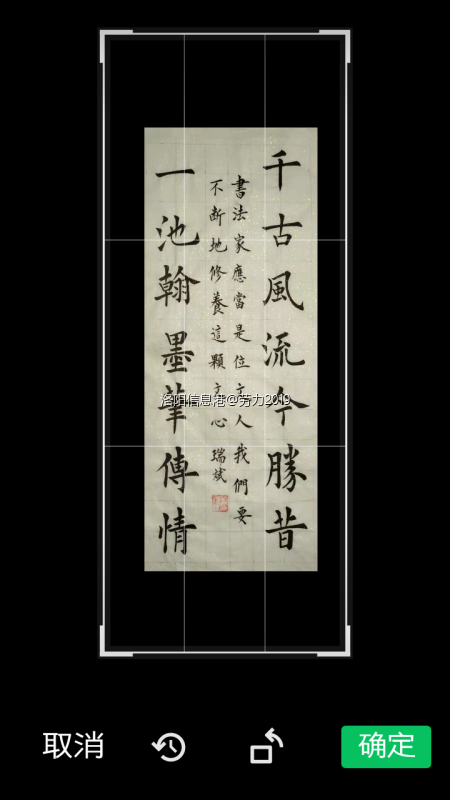 千古風流今勝昔
書法家應當是位人我們要
不斷地修養這顆心 瑞斌
一池翰墨筆傳情
洛阳信息港@劳力2019
取消
确定